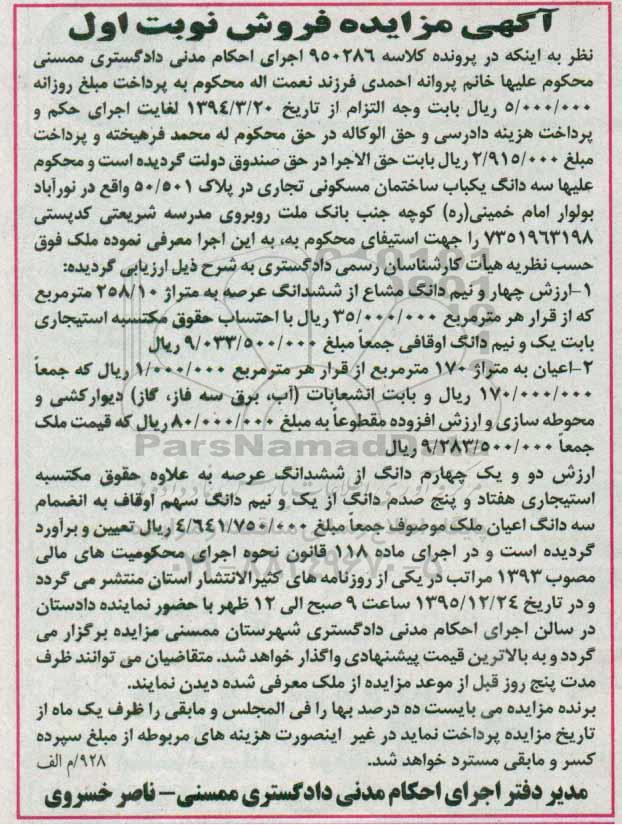 آگهی مزایده فروش نوبت اول
نظر به اینکه در پرونده کلاسه ۹۵۰۲۸۶ اجرای احکام مدنی دادگستری ممسنی
محکوم علیها خانم پروانه احمدی فرزند نعمت اله محکوم به پرداخت مبلغ روزانه
۵/۰۰۰/۰۰۰ ریال بابت وجه التزام از تاریخ ۱۳۹۴/۳/۲۰ لغایت اجرای حکم و
پرداخت هزینه دادرسی و حق الوکاله در حق محکوم له محمد فرهیخته و پرداخت
مبلغ ۲/۹۱۵/۰۰۰ ریال بابت حق الاجرا در حق صندوق دولت گردیده است و محکوم
علیها سه دانگ یکباب ساختمان مسکونی تجاری در پلاک ۵۰/۵۰۱ واقع در نورآباد
بولوار امام خمینی(ره) کوچه جنب بانک ملت روبروی مدرسه شریعتی کدپستی
۷۳۵۱۹۶۳۱۹۸ را جهت استیفای محکوم به، به این اجرا معرفی نموده ملک فوق
حسب نظریه هیأت کارشناسان رسمی دادگستری به شرح ذیل ارزیابی گردیده:
۱-ارزش چهار و نیم دانگ مشاع از ششدانگ عرصه به متراژ ۲۵۸/۱۰ مترمربع
که از قرار هر مترمربع ۳۵/۰۰۰/۰۰۰ ریال با احتساب حقوق مکتسبه استیجاری
بابت یک و نیم دانگ اوقافی جمعاً مبلغ ۹/۰۳۳/۵۰۰/۰۰۰ ریال
۲-اعیان به متراژ ۱۷۰ مترمربع از قرار هر مترمربع ۱/۰۰۰/۰۰۰ ریال که جمعاً
۱۷۰/۰۰۰/۰۰۰ ریال و بابت انشعابات (آب، برق سه فاز، گاز) دیوارکشی و
محوطه سازی و ارزش افزوده مقطوعاً به مبلغ ۸۰/۰۰۰/۰۰۰ ریال که قیمت ملک
جمعاً ۹/۲۸۳/۵۰۰/۰۰۰ ریال
ParsNamadData
ارزش دو و یک چهارم دانگ از ششدانگ عرصه به علاوه حقوق مکتسبه
استیجاری هفتاد و پنج صدم دانگ از یک و نیم دانگ سهم اوقاف به انضمام
سه دانگ اعیان ملک موصوف جمعاً مبلغ ۴/۶۴۱/۷۵۰/۰۰۰ ریال تعیین و برآورد
گردیده است و در اجرای ماده ۱۱۸ قانون نحوه اجرای محکومیت های مالی
۰۲۱-۸۸۳۴۹۶۷۰-۵
مصوب ۱۳۹۳ مراتب در یکی از روزنامه های کثیرالانتشار استان منتشر می گردد
و در تاریخ ۱۳۹۵/۱۲/۲۴ ساعت ۹ صبح الی ۱۲ ظهر با حضور نماینده دادستان
در سالن اجرای احکام مدنی دادگستری شهرستان ممسنی مزایده برگزار می
گردد و به بالاترین قیمت پیشنهادی واگذار خواهد شد. متقاضیان می توانند ظرف
مدت پنج روز قبل از موعد مزایده از ملک معرفی شده دیدن نمایند.
برنده مزایده می بایست ده درصد بها را فی المجلس و مابقی را ظرف یک ماه از
تاریخ مزایده پرداخت نماید در غیر اینصورت هزینه های مربوطه از مبلغ سپرده
کسر و مابقی مسترد خواهد شد. ۹۲۸/م الف
مدیر دفتر اجرای احکام مدنی دادگستری ممسنی- ناصر خسروی